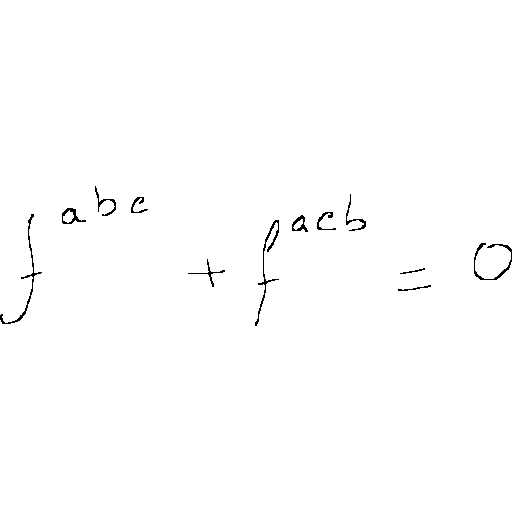 f^{abc} + f^{acb} = 0